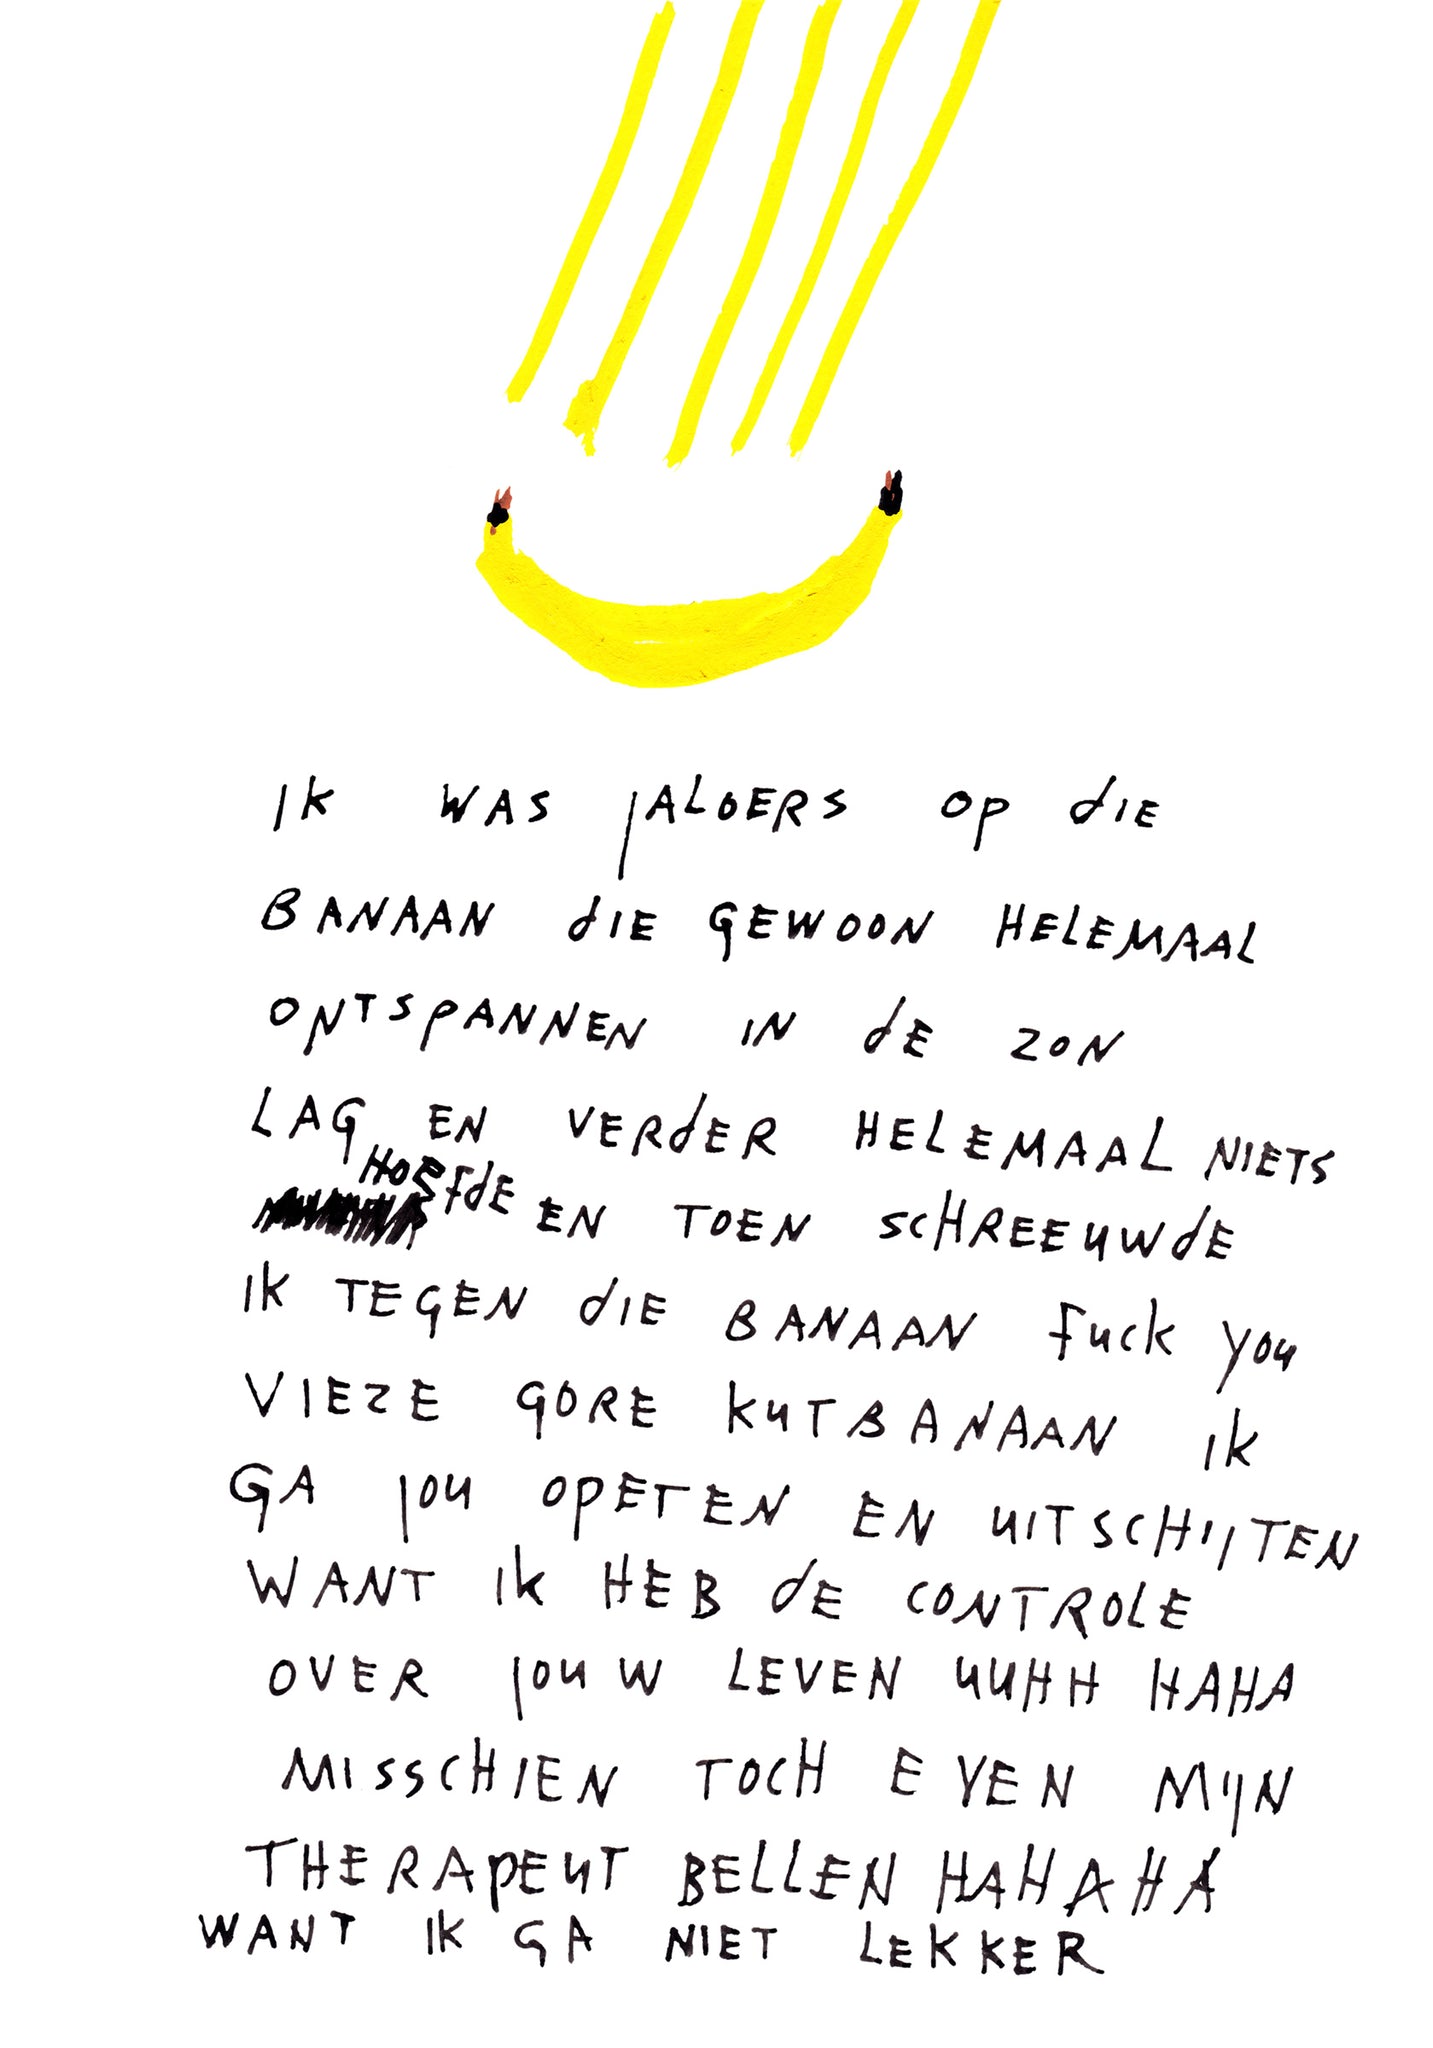 IK WAS JALOERS OP dIE
BANAAN dIE GEWOON HELEMAAL
ONTSPANNEN IN dE ZON
LAG EN VERdER HELEMAAL NIETS
HOEfdE EN TOEN SCHREEUWdE
IK TEGEN dIE BANAAN fuck you
VIEZE GORE KUTBANAAN IK
GA JOU OPETEN EN UITSCHIJTEN
WANT IK HEB dE CONTROLE
OVER JOUW LEVEN UUHH HAHA
MISSCHIEN TOCH EVEN MIJN
THERAPEUT BELLEN HAHAHA
WANT IK GA NIET LEKKER